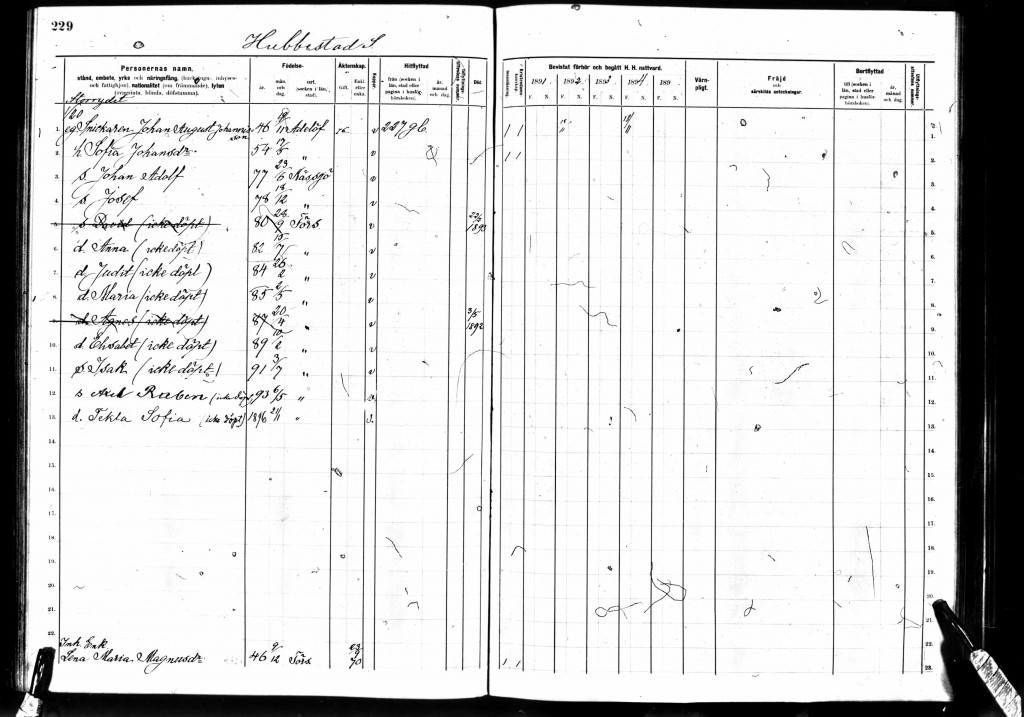 229
Hubbestad S.
Personernas namn,
stånd, embete, yrke och näringsfång, (backstugu-, inhyses-
och fattighjon), nationalitet (om främmande), lyten
(svagsinta, blinda, döfstumma).
Födelse-
år.
mån. och dag.
ort. (socken i län, stad).
Äktenskap.
Gift.
Enkl. eller enka.
Koppor.
Hitflyttad
från (socken i län, stad eller pagina i husförhörsboken).
år, månad och dag.
Död.
Bevistat förhör och begått H. H. nattvard.
1891 1892 1893 1894 189
F. N. F. N. F. N. F. N. F. N.
Värn-
pligt.
Fräjd
och
särskilda anteckningar.
Bortflyttad
till (socken i län, stad eller pagina i husförhörsboken).
år, månad och dag.
Storrydet
1/60
1. eg Snickaren Johan August Johannisson 46 Adelöf 76 v 207 96. 1 1
2. h Sofia Johansdr 54 " v 1 1
3. s Johan Adolf 77 23/6 Nässjö v
4. s Josef 78 18/12 " v
5. s David (icke döpt) 80 Törs v 1893
6. d. Anna (icke döpt) 82 15/7 " v
7. d. Judit (icke döpt) 84 26/2 " v
8. d. Maria (icke döpt) 85 2/5 " v
9. d. Agnes (icke döpt) 87 20/4 " v 3/5 1892
10. d. Elisabet (icke döpt) 89 10/2 " v
11. s Isak (icke döpt) 91 3/7 " v
12. s Axel Ruben (icke döpt) 93 6/5 "
13. d. Tekla Sofia (icke döpt) 1896 21/11 "
14.
15.
16.
17.
18.
19.
20.
21.
22.
Inh. Enk.
Lina Maria Magnusdr 46 9/12 Törs 70 1 1
23.